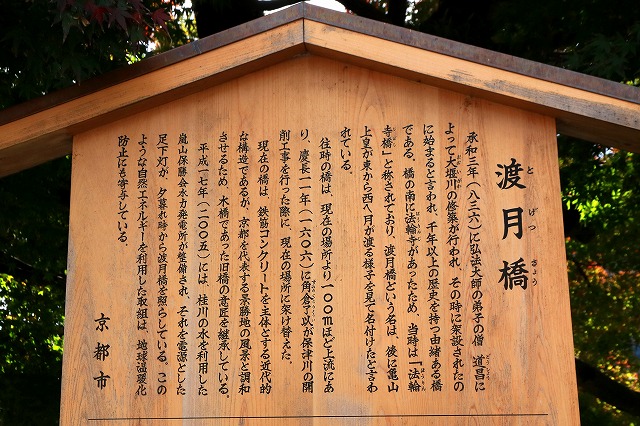 渡月橋
とげつきょう
承和三年（八三六）に弘法大師の弟子の僧 道昌に
どうしょう
よって大堰川の修築が行われ、その時に架設されたの
おおい
に始まると言われ、千年以上の歴史を持つ由緒ある橋
である。橋の南に法輪寺があったため、当時は「法輪
寺橋」と称されており、渡月橋という名は、後に亀山
上皇が東から西へ月が渡る様子を見て名付けたと言わ
れている。
往時の橋は、現在の場所より１００ｍほど上流にあ
り、慶長一一年（一六〇六）に角倉了以が保津川の開
削工事を行った際に、現在の場所に架け替えた。
現在の橋は、鉄筋コンクリートを主体とする近代的
な構造であるが、京都を代表する景勝地の風景と調和
させるため、木橋であった旧橋の意匠を継承している。
平成一七年（二〇〇五）には、桂川の水を利用した
嵐山保勝会水力発電所が整備され、それを電源とした
足下灯が、夕暮れ時から渡月橋を照らしている。この
ような自然エネルギーを利用した取組は、地球温暖化
防止にも寄与している。
京都市